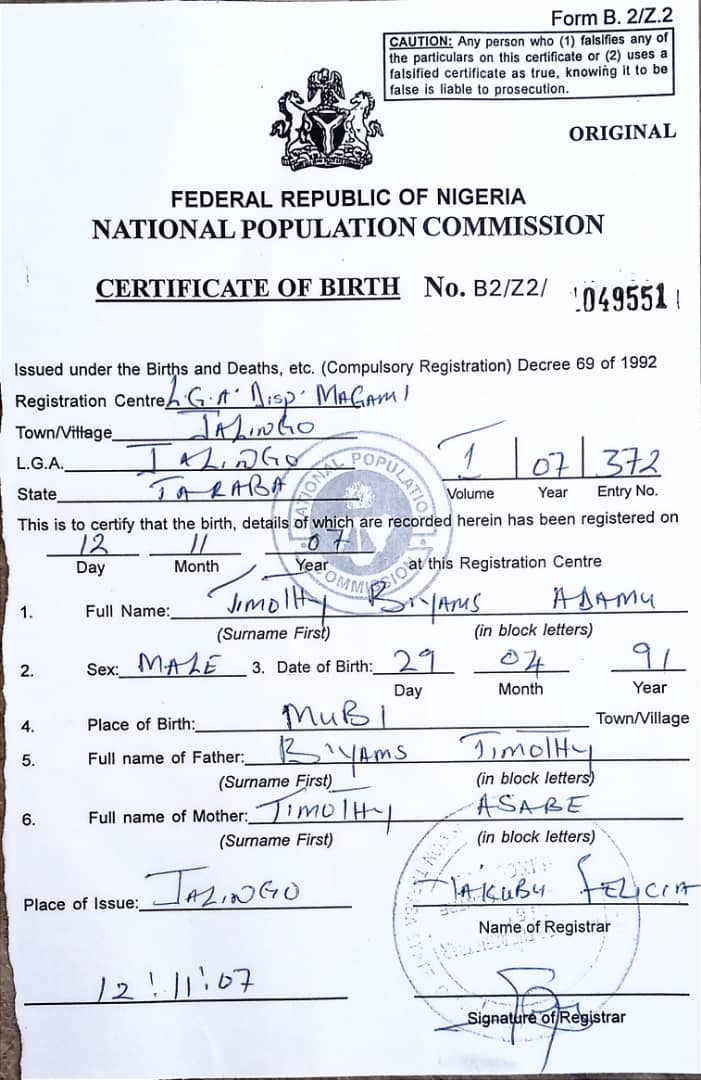 Form B. 2/Z.2
CAUTION: Any person who (1) falsifies any of
the particulars on this certificate or (2) uses a
falsified certificate as true, knowing it to be
false is liable to prosecution.
ORIGINAL
FEDERAL REPUBLIC OF NIGERIA
NATIONAL POPULATION COMMISSION
CERTIFICATE OF BIRTH No. B2/Z2/ 049551
Issued under the Births and Deaths, etc. (Compulsory Registration) Decree 69 of 1992
Registration Centre L.G.A. DISP. MAGAMI
Town/Village JALINGO
L.G.A. JALINGO
State TARABA
I 07 372
Volume Year Entry No.
NATIONAL POPULATION COMMISSION
This is to certify that the birth, details of which are recorded herein has been registered on
12 11 07
Day Month Year at this Registration Centre
1. Full Name: TIMOTHY BIYAMS ADAMU
(Surname First) (in block letters)
2. Sex: MALE 3. Date of Birth: 29 04 91
Day Month Year
4. Place of Birth: MUBI Town/Village
5. Full name of Father: BIYAMS TIMOTHY
(Surname First) (in block letters)
6. Full name of Mother: TIMOTHY ASABE
(Surname First) (in block letters)
Place of Issue: JALINGO YAKUBU FELICIA
Name of Registrar
12.11.07
Signature of Registrar